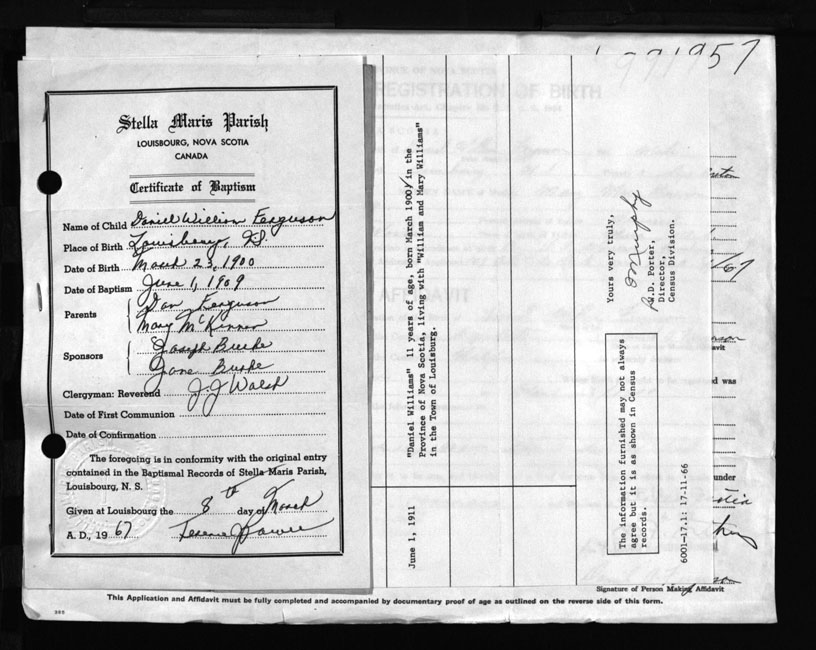 Stella Maris Parish
LOUISBOURG, NOVA SCOTIA
CANADA
Certificate of Baptism
Name of Child Daniel William Ferguson
Place of Birth Louisbourg, N.S.
Date of Birth March 23, 1900
Date of Baptism June 1, 1909
Parents Dan Ferguson
Mary McKinnon
Sponsors Joseph Burke
Jane Burke
Clergyman: Reverend J. J. Walsh
Date of First Communion
Date of Confirmation
The foregoing is in conformity with the original entry
contained in the Baptismal Records of Stella Maris Parish,
Louisbourg, N. S.
Given at Louisbourg the 8th day of March
A. D., 1967
991957
REGISTRATION OF BIRTH
AFFIDAVIT
June 1, 1911
"Daniel Williams" 11 years of age, born March 1900 in the
Province of Nova Scotia, living with "William and Mary Williams"
in the Town of Louisburg.
Yours very truly,
W.D. Porter,
Director,
Census Division.
The information furnished may not always
agree but it is as shown in Census
records.
6001-17.1: 17-11-66
/67
avit
d was
under
Signature of Person Making Affidavit
This Application and Affidavit must be fully completed and accompanied by documentary proof of age as outlined on the reverse side of this form.